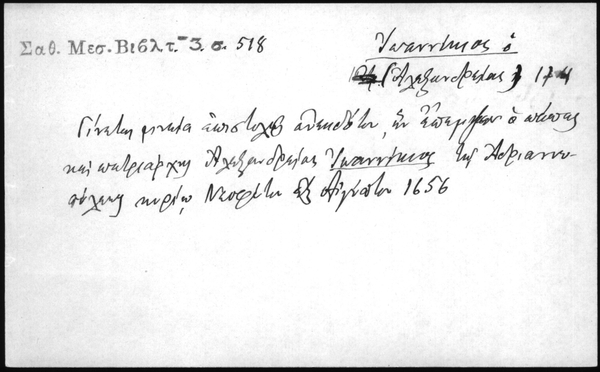 Σαθ. Μεσ. Βιβλ τ. 3. σ. 518
Ἰωαννίκιος ὁ
(Ἀλεξανδρείας) 17
Γίνεται μνεία ἐπιστολῆς ἀνεκδότου, ἣν ἔπεμψεν ὁ πάπας
καὶ πατριάρχης Ἀλεξανδρείας Ἰωαννίκιος τῷ Ἀδριανου-
πόλεως κυρίῳ Νεοφύτῳ Αὐγούστου 1656